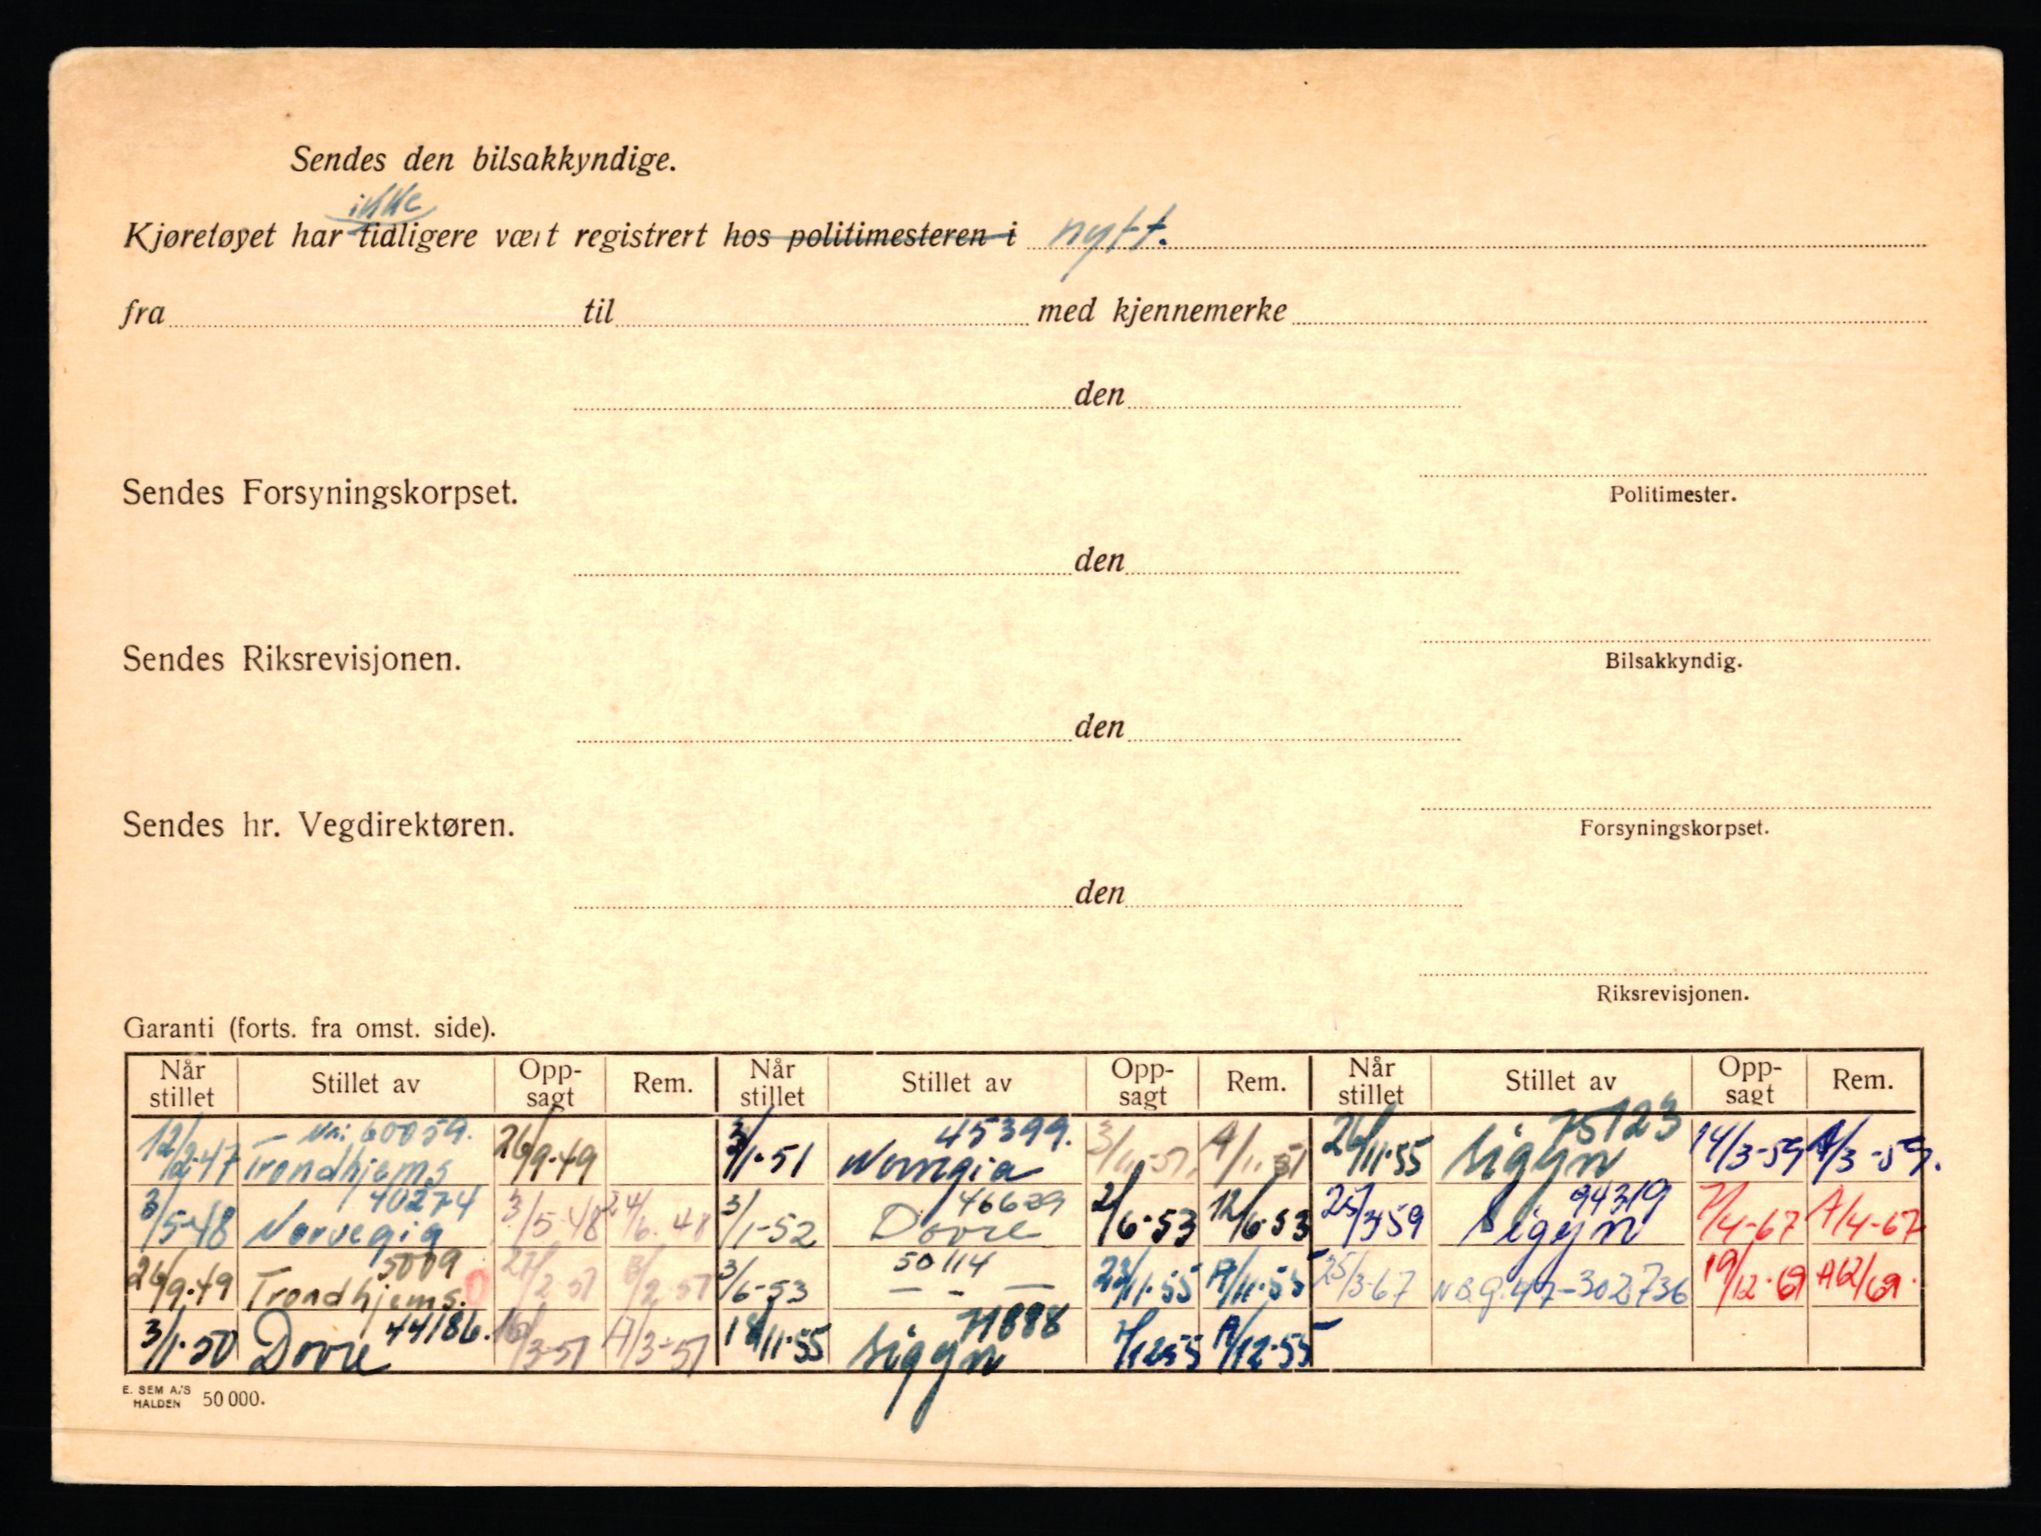 Sendes den bilsakkyndige.
ikke
Kjøretøyet har tidligere vært registrert hos politimesteren i nytt.
fra til med kjennemerke
den
Politimester.
Sendes Forsyningskorpset.
den
Bilsakkyndig.
Sendes Riksrevisjonen.
den
Forsyningskorpset.
Sendes hr. Vegdirektøren.
den
Riksrevisjonen.
Garanti (forts. fra omst. side).
Når stillet Stillet av Opp-sagt Rem. Når stillet Stillet av Opp-sagt Rem. Når stillet Stillet av Opp-sagt Rem.
60059. 45399. 75123
12/12-47 Trondhjems 26/9-49 3/1-51 Norvegia 26/11-55 Sigyn 14/3-59 A/3-59.
40274 46629 94319
3/5-48 Norvegia 3/5-48 24/6.48 3/1-52 Dovre 2/6-53 12/6-53 25/3-59 Sigyn 7/4-67 A/4-67
5009 50114
26/9-49 Trondhjems. 27/2-51 3/6-53 — - — 23/11-55 A/11-55 25/3-67 47-302736 19/12-69 A12/69.
44186. 71888
3/1-50 Dovre 16/3-51 A/3-51 18/11-55 Sigyn 7/12-55 A/12-55
E. SEM A/S
HALDEN 50 000.